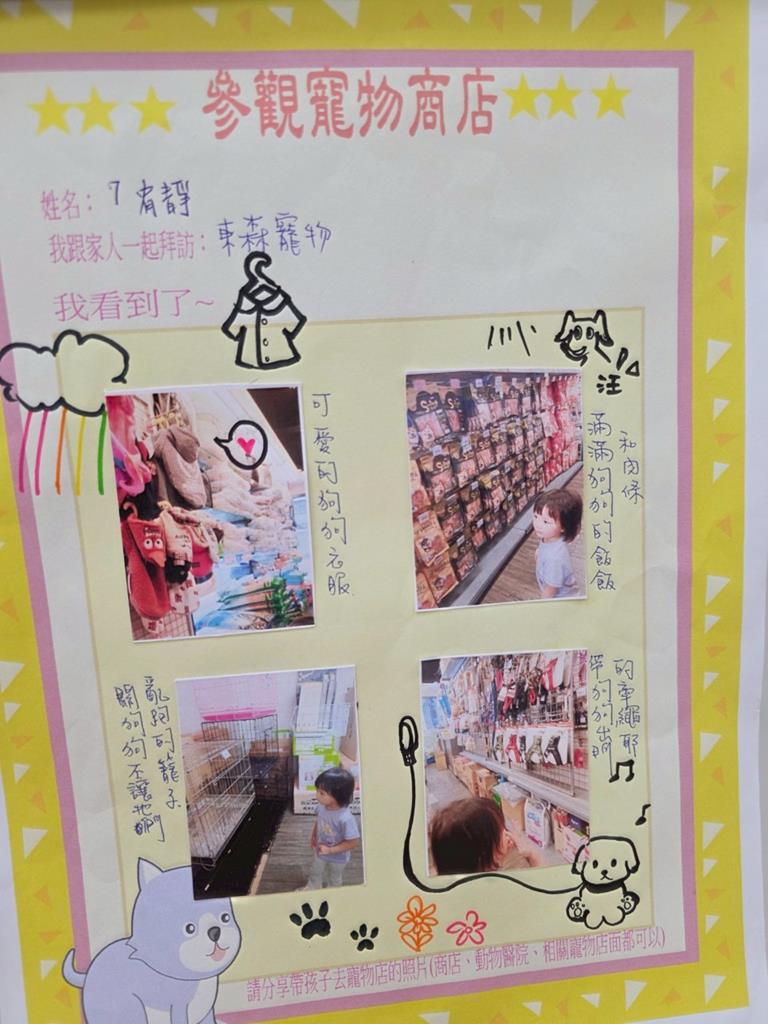 參觀寵物商店
姓名：7 宥靜
我跟家人一起拜訪：東森寵物
我看到了~
可愛的狗狗衣服
汪
滿滿狗狗的飯飯
和肉條
關狗狗不讓牠們
亂跑的籠子
帶狗狗出門
的牽繩耶
請分享帶孩子去寵物店的照片(商店、動物醫院、相關寵物店面都可以)